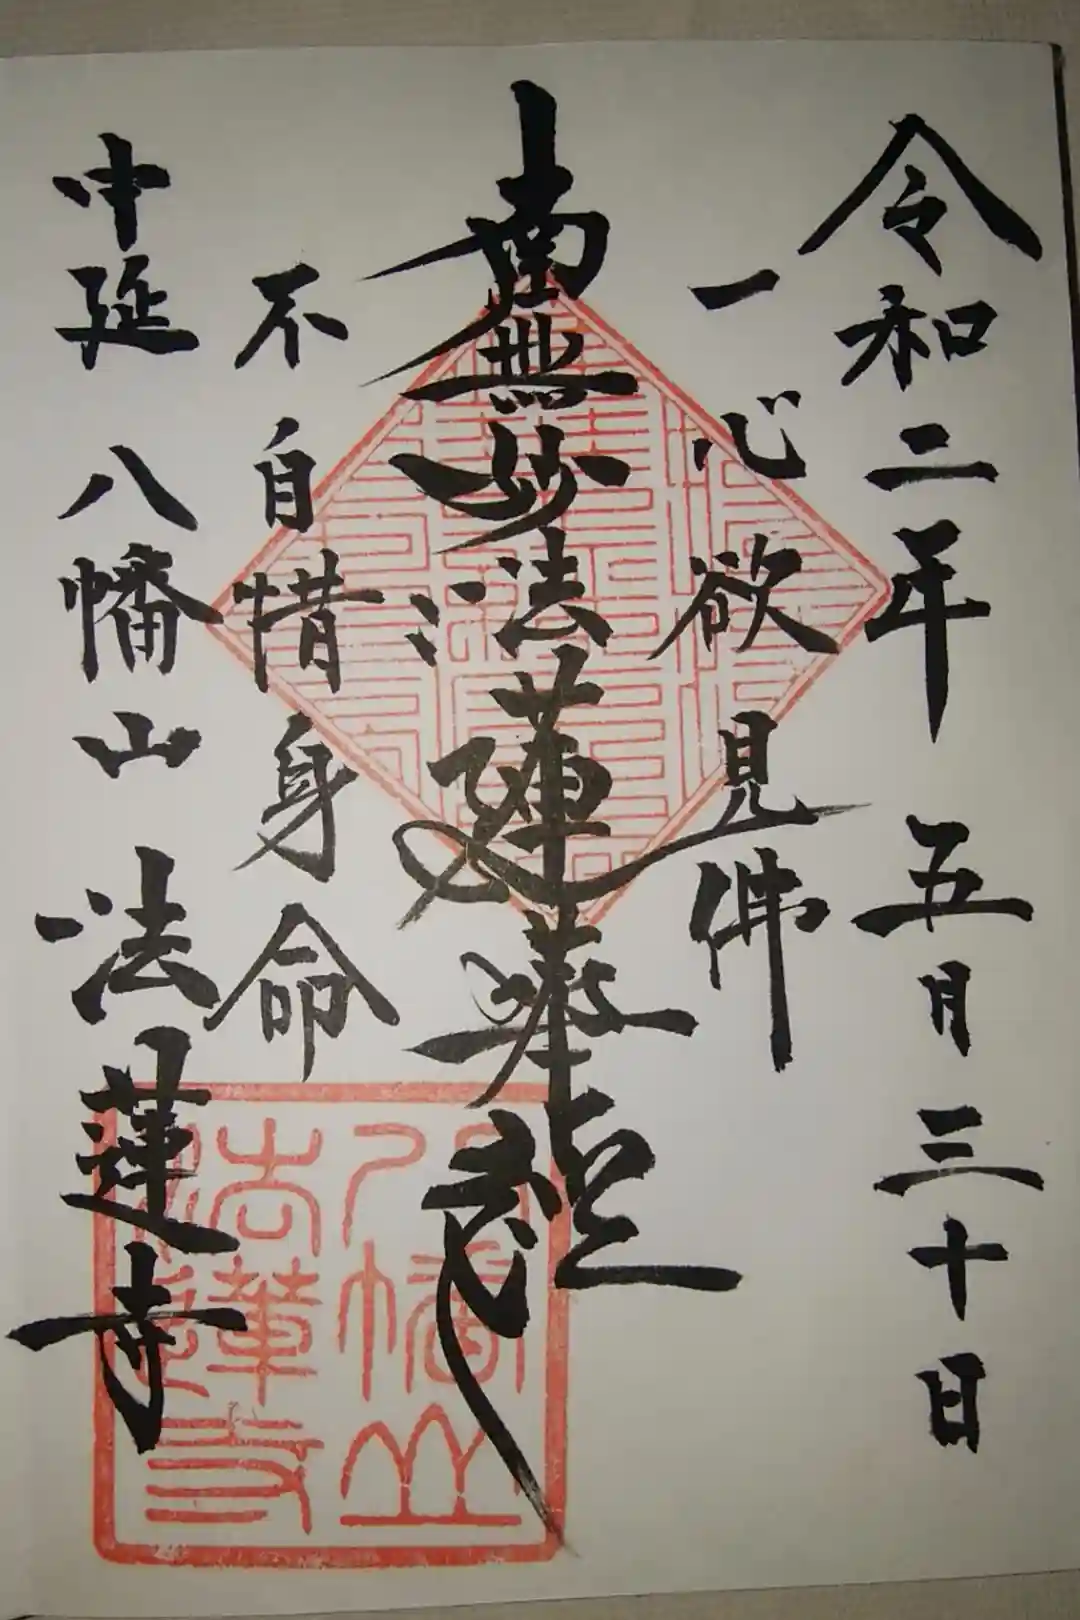 令和二年 五月 三十日
一心欲見佛
南無妙法蓮華經
不自惜身命
中延 八幡山 法蓮寺
八幡山
法蓮寺